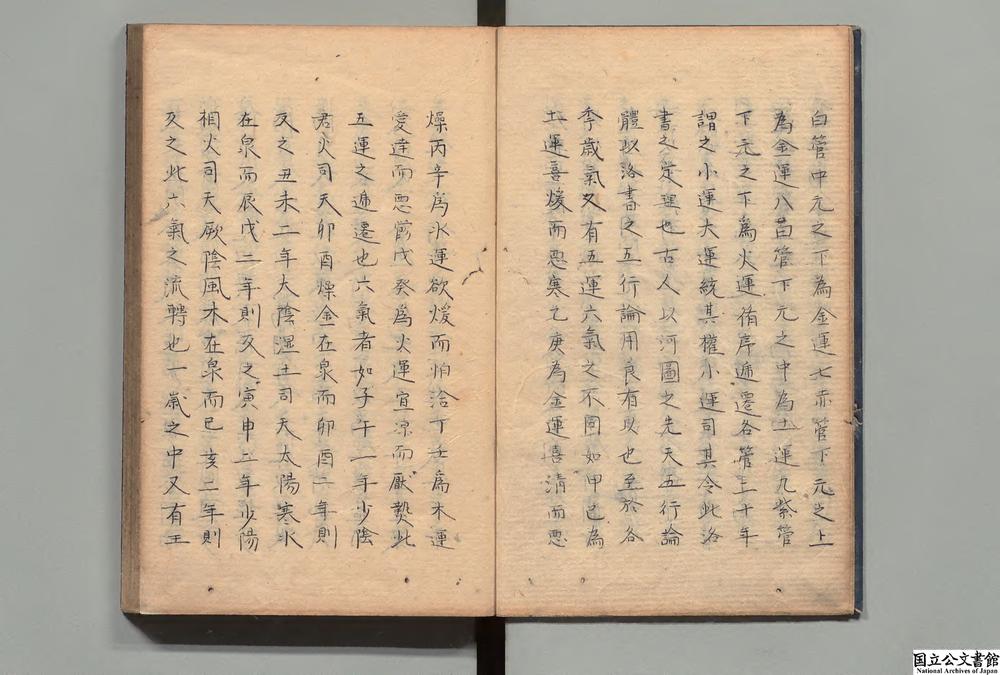 白管中元之下為金運七赤管下元之上
為金運八苗管下元之中為土運九紫管
下元之下為火運循序遞遷各管二十年
謂之小運大運統其權小運司其令此洛
書之定理也古人以河圖之先天五行論
體以洛書之五行論用良有以也至於各
季歲氣又有五運六氣之不同如甲己為
土運喜煖而惡寒乙庚為金運喜清而惡
燥丙辛為水運欲煖而怕 丁壬為木運
愛達而惡 戊癸為火運宜凉而厭 此
五運之遞遷也六氣者如子午二年少陰
君火司天卯酉燥金在泉而卯酉二年則
反之丑未二年太陰濕土司天太陽寒水
在泉而辰戌二年則反之寅申二年少陽
相火司天厥陰風木在泉而巳亥二年則
反之此六氣之流轉也一歲之中又有王
国立公文書館
National Archives of Japan